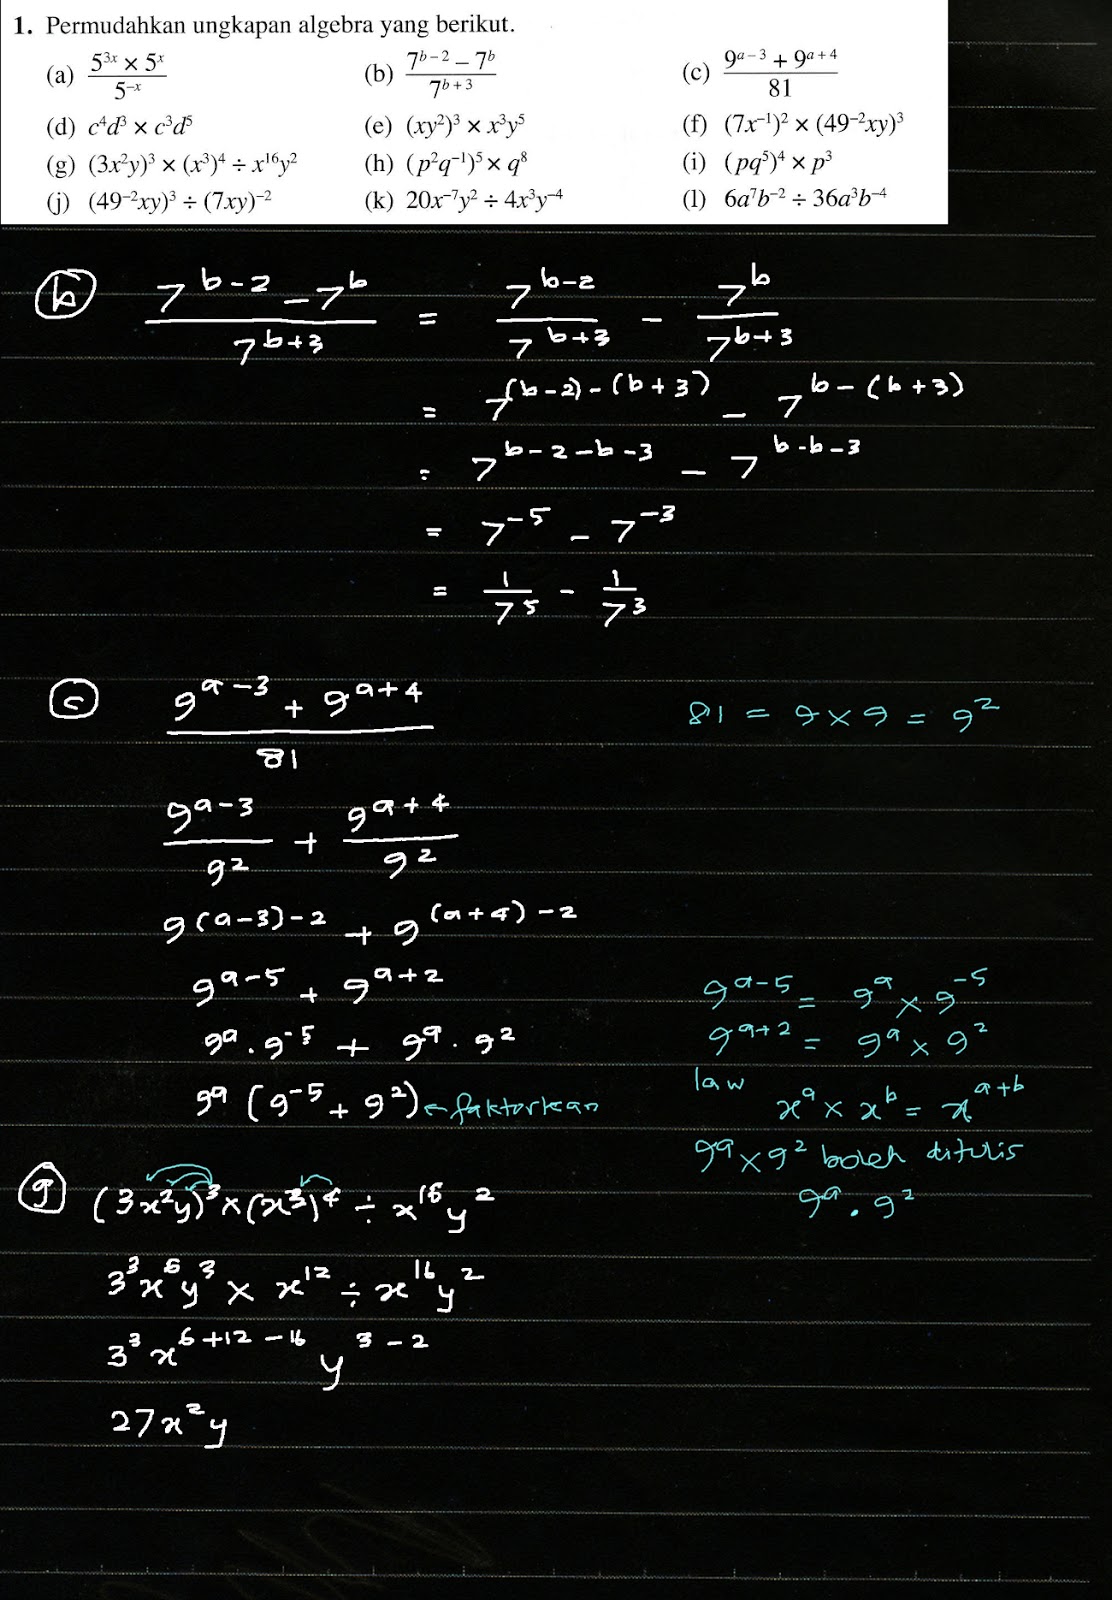 1. Permudahkan ungkapan algebra yang berikut.
(a) (5^{3x} × 5^{x})/5^{-x} (b) (7^{b-2} - 7^{b})/7^{b+3} (c) (9^{a-3} + 9^{a+4})/81
(d) c⁴d³ × c³d⁵ (e) (xy²)³ × x³y⁵ (f) (7x⁻¹)² × (49⁻²xy)³
(g) (3x²y)³ × (x³)⁴ ÷ x¹⁶y² (h) (p²q⁻¹)⁵ × q⁸ (i) (pq⁵)⁴ × p³
(j) (49⁻²xy)³ ÷ (7xy)⁻² (k) 20x⁻⁷y² ÷ 4x³y⁻⁴ (l) 6a⁷b⁻² ÷ 36a³b⁻⁴
(b) (7^{b-2} - 7^{b})/7^{b+3} = 7^{b-2}/7^{b+3} - 7^{b}/7^{b+3}
= 7^{(b-2)-(b+3)} - 7^{b-(b+3)}
= 7^{b-2-b-3} - 7^{b-b-3}
= 7⁻⁵ - 7⁻³
= 1/7⁵ - 1/7³
(c) (9^{a-3} + 9^{a+4})/81 81 = 9 × 9 = 9²
9^{a-3}/9² + 9^{a+4}/9²
9^{(a-3)-2} + 9^{(a+4)-2}
9^{a-5} + 9^{a+2} 9^{a-5} = 9^{a} × 9⁻⁵
9^{a} · 9⁻⁵ + 9^{a} · 9² 9^{a+2} = 9^{a} × 9²
9^{a} (9⁻⁵ + 9²) ← faktorkan law x^{a} × x^{b} = x^{a+b}
9^{a} × 9² boleh ditulis
9^{a} · 9²
(g) (3x²y)³ × (x³)⁴ ÷ x¹⁶y²
3³x⁶y³ × x¹² ÷ x¹⁶y²
3³ x^{6+12-16} y^{3-2}
27x²y